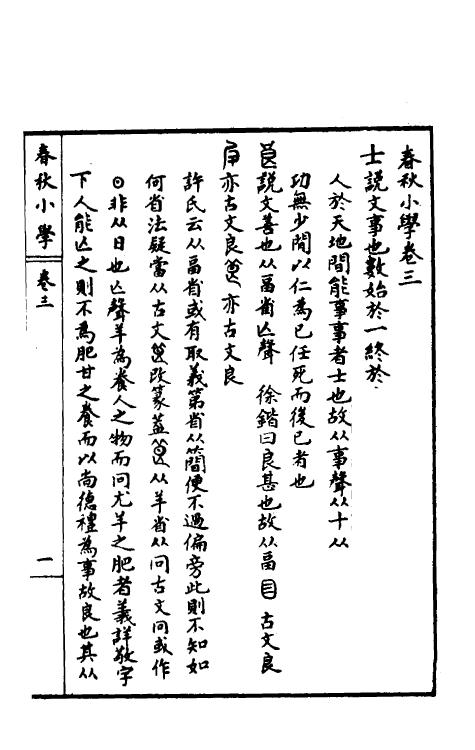 春秋小學卷三
士說文事也數始於一終於
人於天地間能事事者士也故从事聲从十从
功無少間以仁為己任死而後已者也
說文善也从畗省亾聲 徐鍇曰良甚也故从畗 古文良
亦古文良 亦古文良
許氏云从畗省或有取義第省从簡便不過偏旁此則不知如
何省法疑當从古文 改篆 从羊省从 古文 或作
⊙非从日也亾聲羊為養人之物而問尤羊之肥者義詳敬字
下人能亾之則不為肥甘之養而以尚德禮為事故良也其从
春秋小學
卷三
一